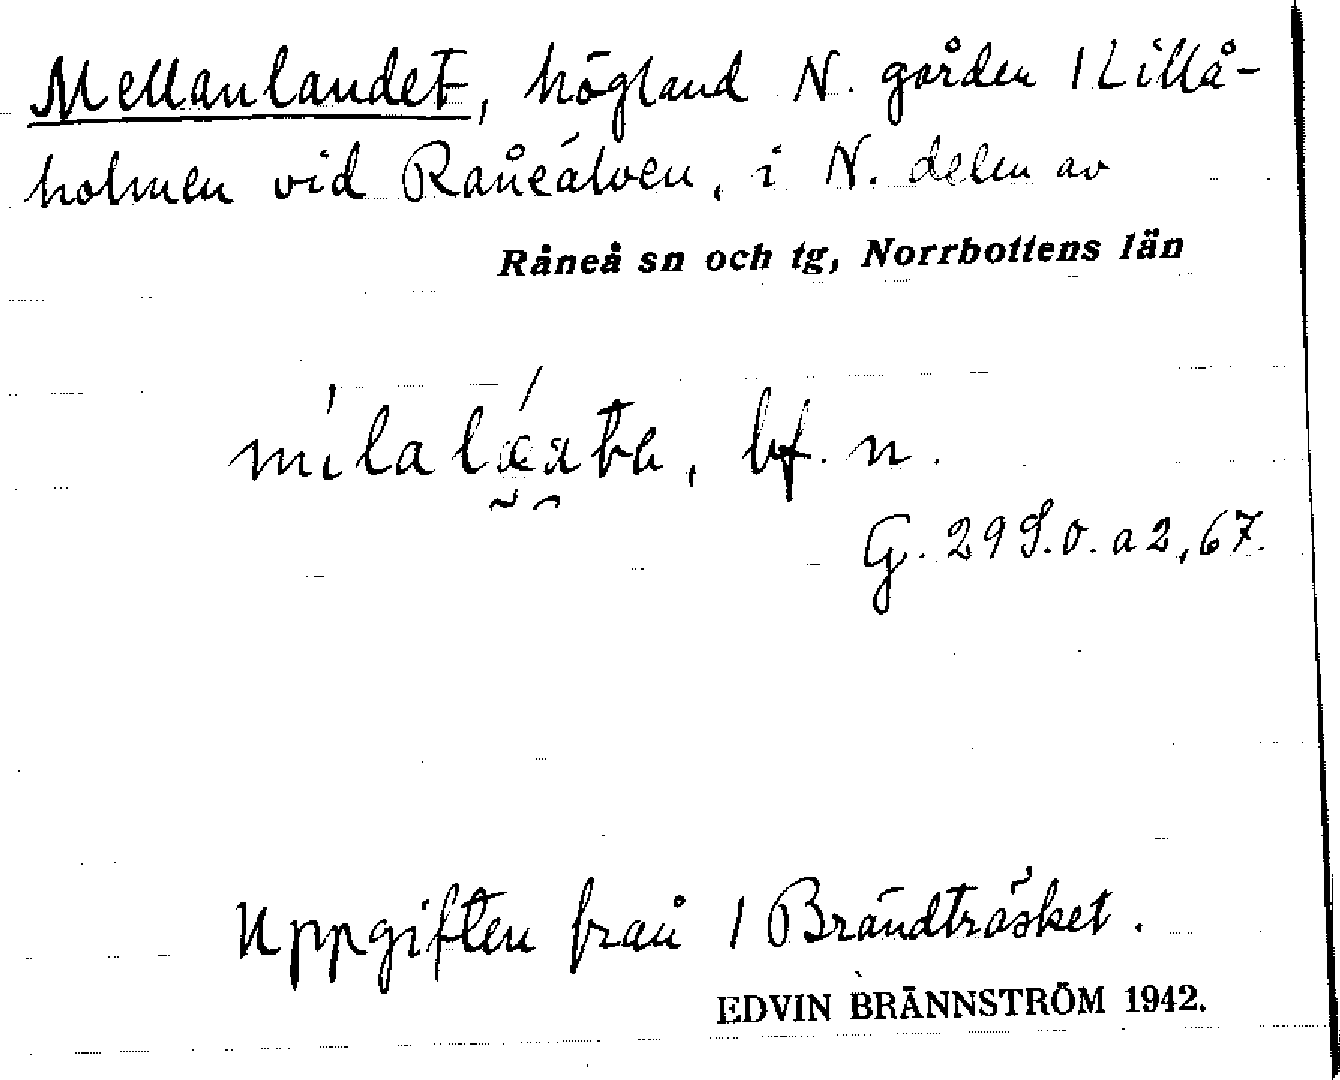 Mellanlandet, högland N. gården 1 Lillå-
holmen vid Råneälven, i N. delen av
Råneå sn och tg, Norrbottens län
bf. n.
G. 29 S.O. a 2, 67.
Uppgiften från 1 Brändträsket.
EDVIN BRÄNNSTRÖM 1942.